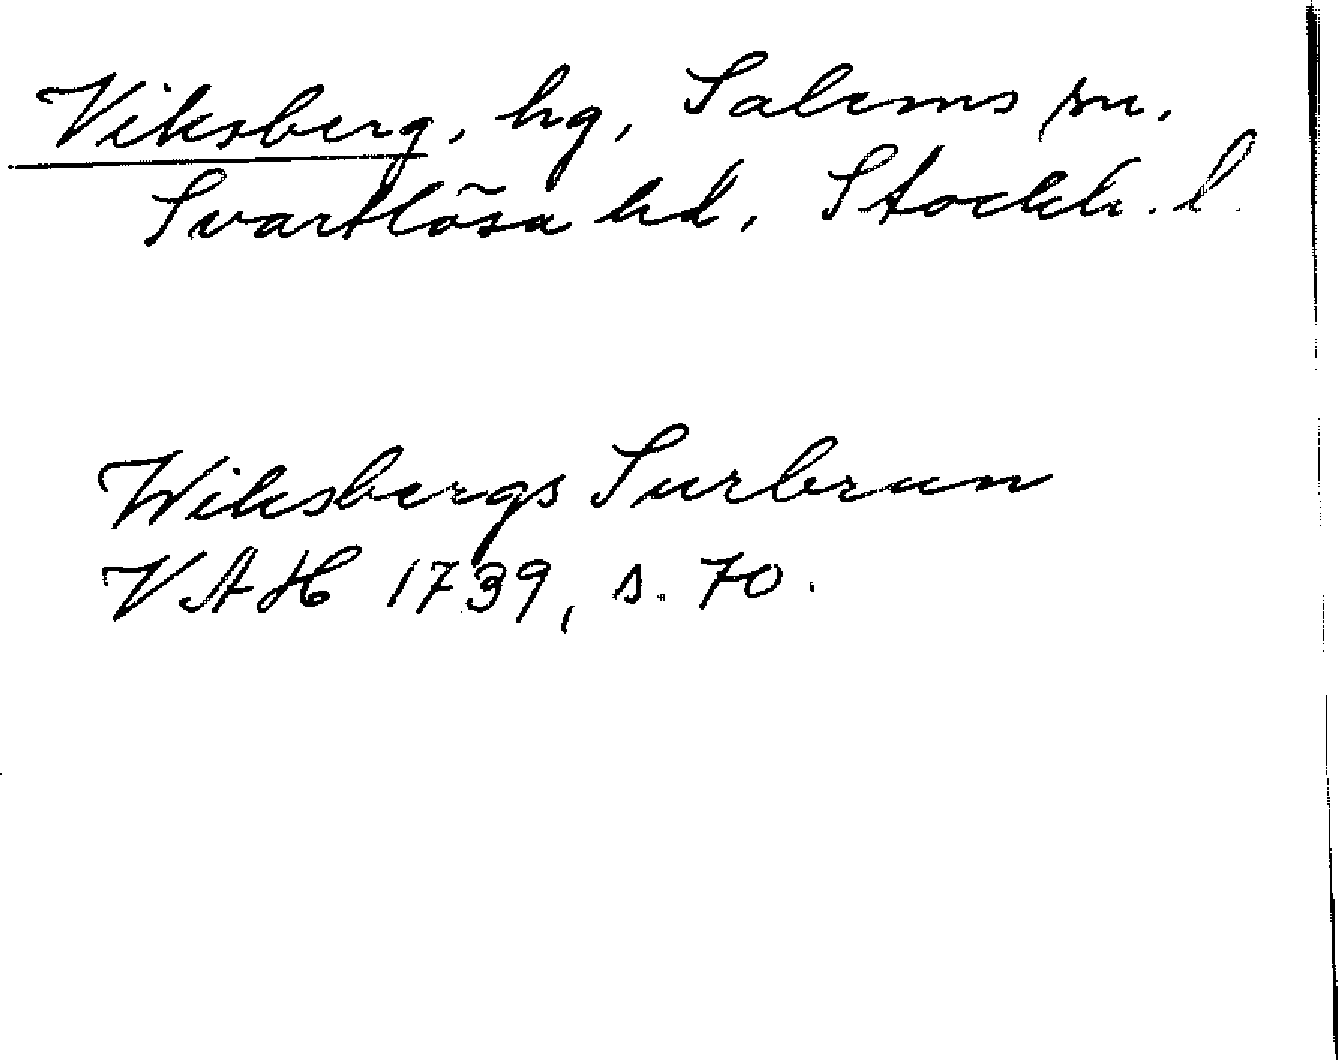 Viksberg, hg, Salems sn.
Svartlösa hd, Stockh. l.
Wiksbergs Surbrun
VAH 1739, s. 70.